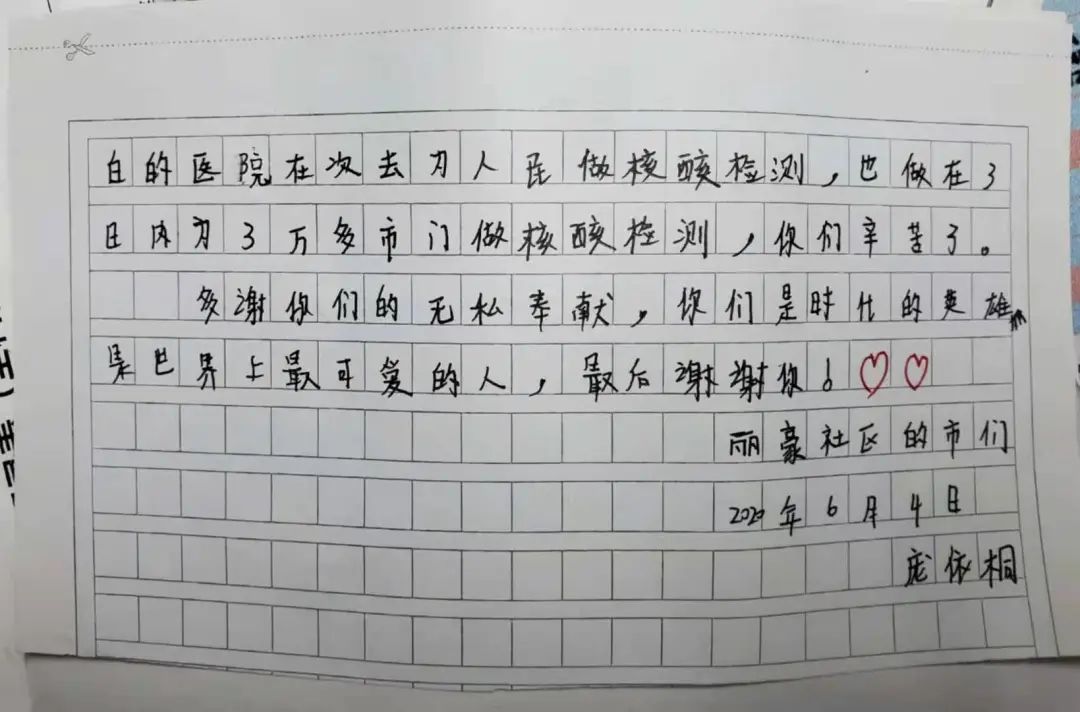 白的医院在次去为人民做核酸检测，也做在3
日内为3万多市门做核酸检测，你们辛苦了。
多谢你们的无私奉献，你们是时代的英雄
是世界上最可爱的人，最后谢谢你！
丽豪社区的市们
2020年6月4日
庞依桐